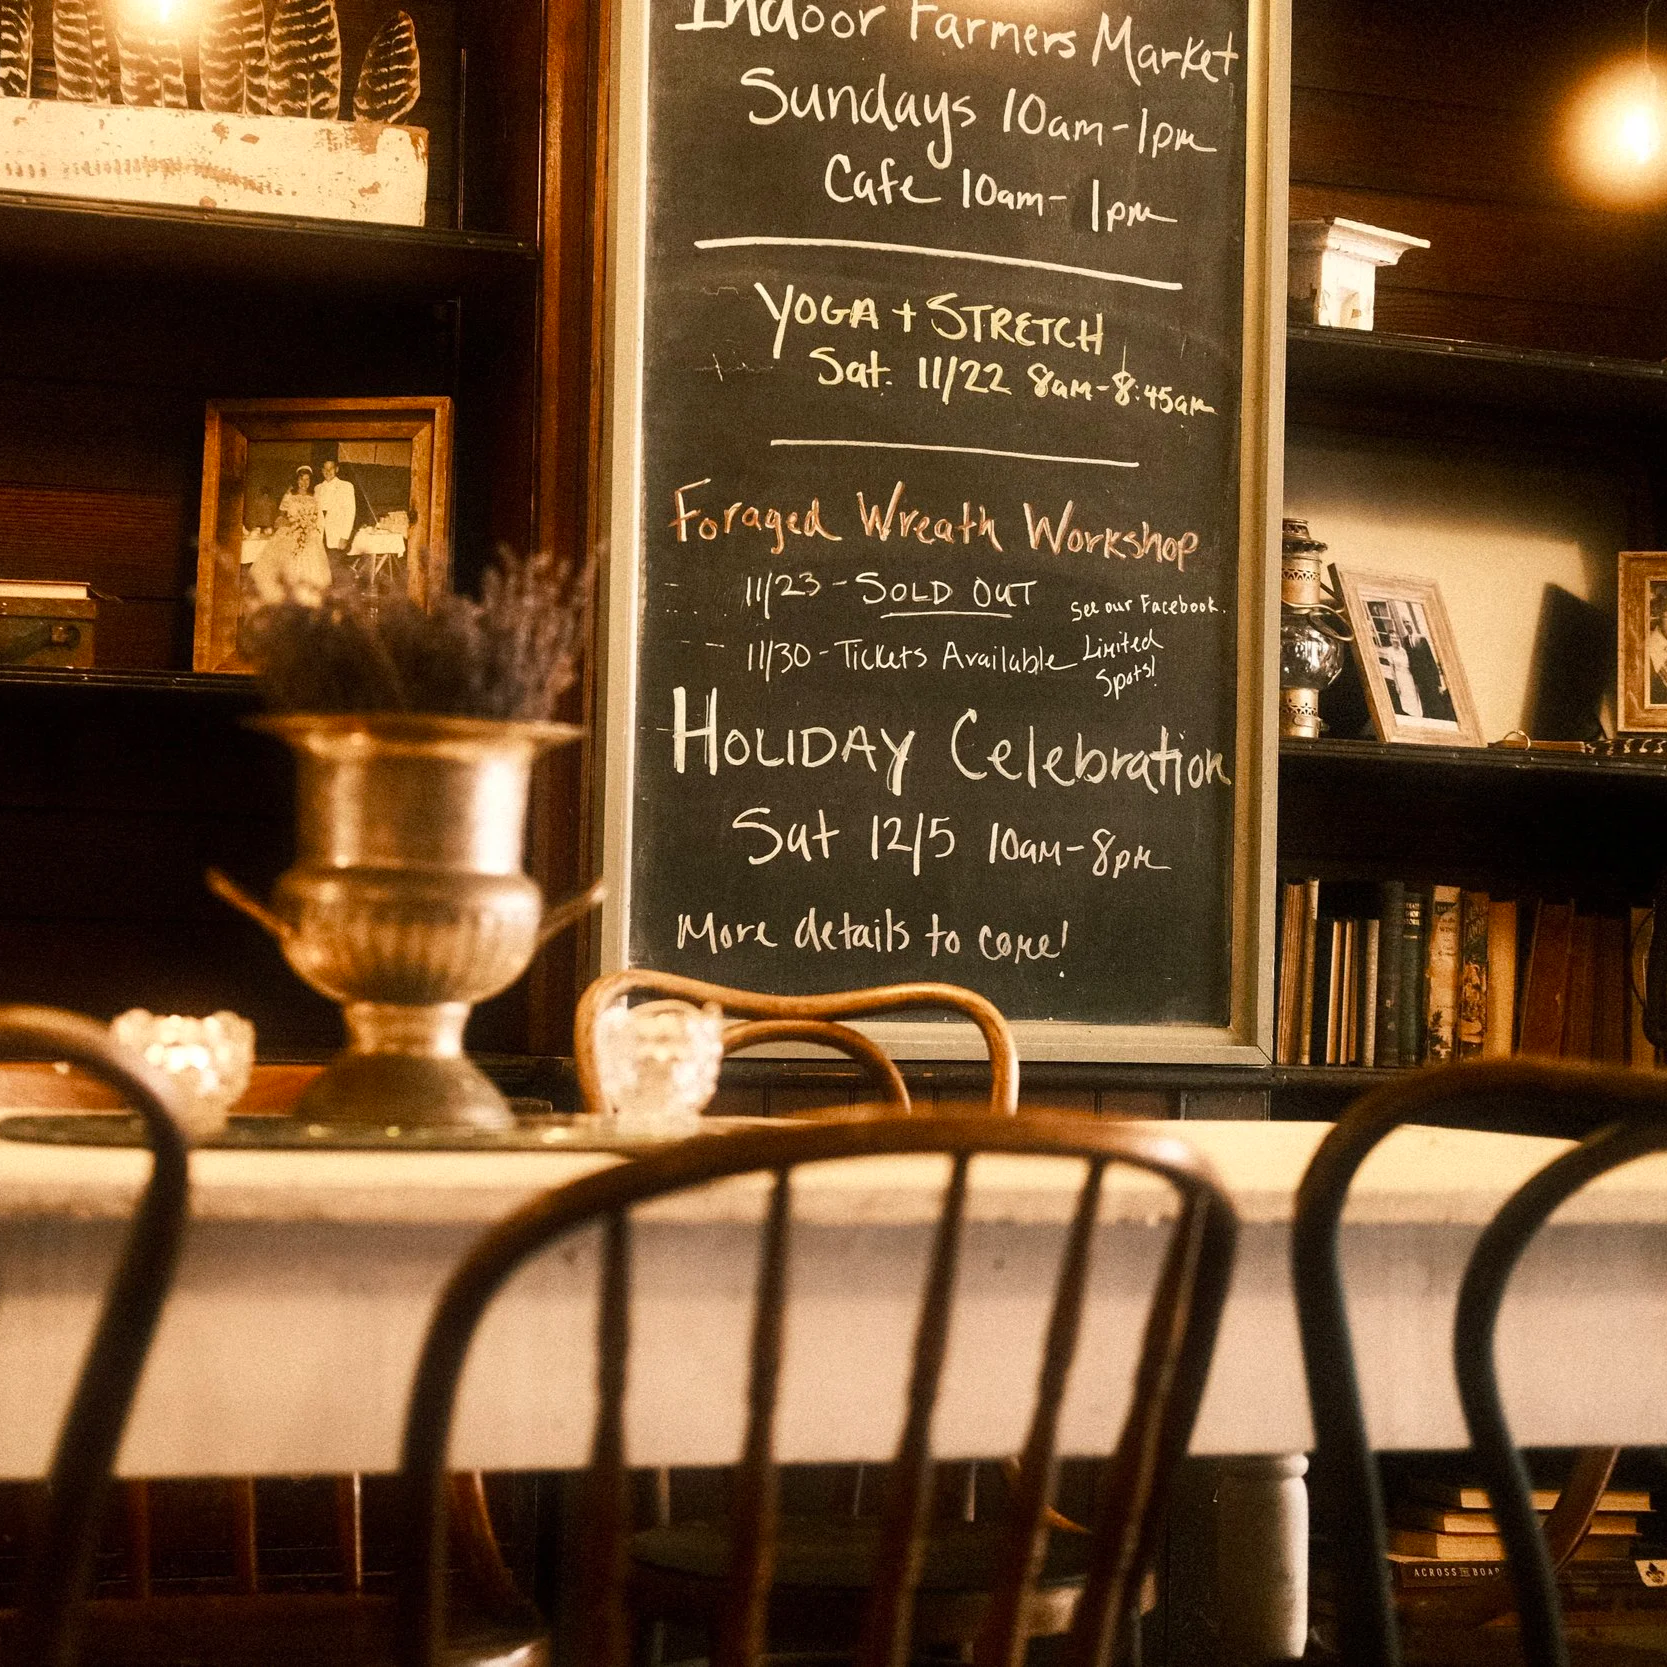 Indoor Farmers Market
Sundays 10am-1pm
Cafe 10am-1pm
YOGA + STRETCH
Sat. 11/22 8am-8:45am
Foraged Wreath Workshop
11/23 - SOLD OUT
See our Facebook.
11/30 - Tickets Available
Limited
Spots!
HOLIDAY Celebration
Sat 12/5 10am-8pm
More details to come!
ACROSS THE BOAR